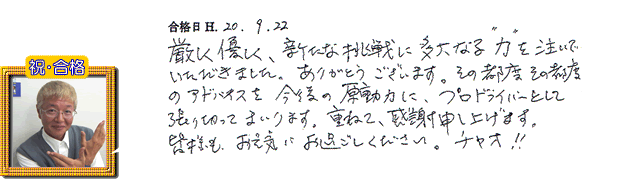 合格日 H. 20. 9. 22
厳しく優しく、新たな挑戦に多大なる"力"を注いで
いただきました。ありがとうございます。その都度その都度
のアドバイスを今後の原動力に、プロドライバーとして
張り切ってまいります。重ねて、感謝申し上げます。
皆様も、お元気にお過ごしください。チャオ!!
祝・合格